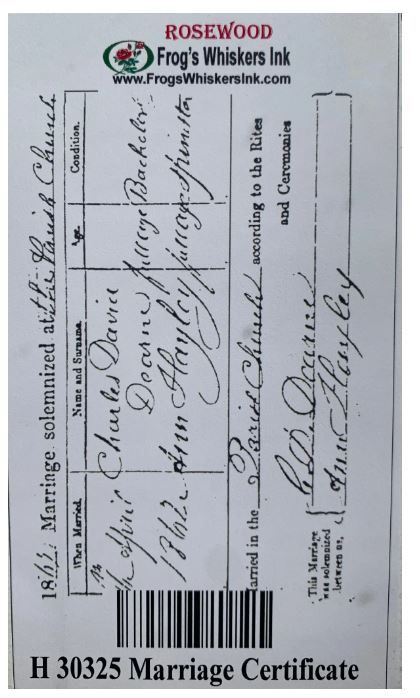 ROSEWOOD
Frog's Whiskers Ink
www.FrogsWhiskersInk.com
1862. Marriage solemnized at the Parish Church
When Married.
Name and Surname.
Age.
Condition.
April
1862
Charles David
Dearne
full age
Bachelor
Ann Hayley
full age
Spinster
arried in the Paris Church according to the Rites
and Ceremonies
This Marriage
was solemnized
between us,
C. D. Dearne
Ann Hayley
H 30325 Marriage Certificate